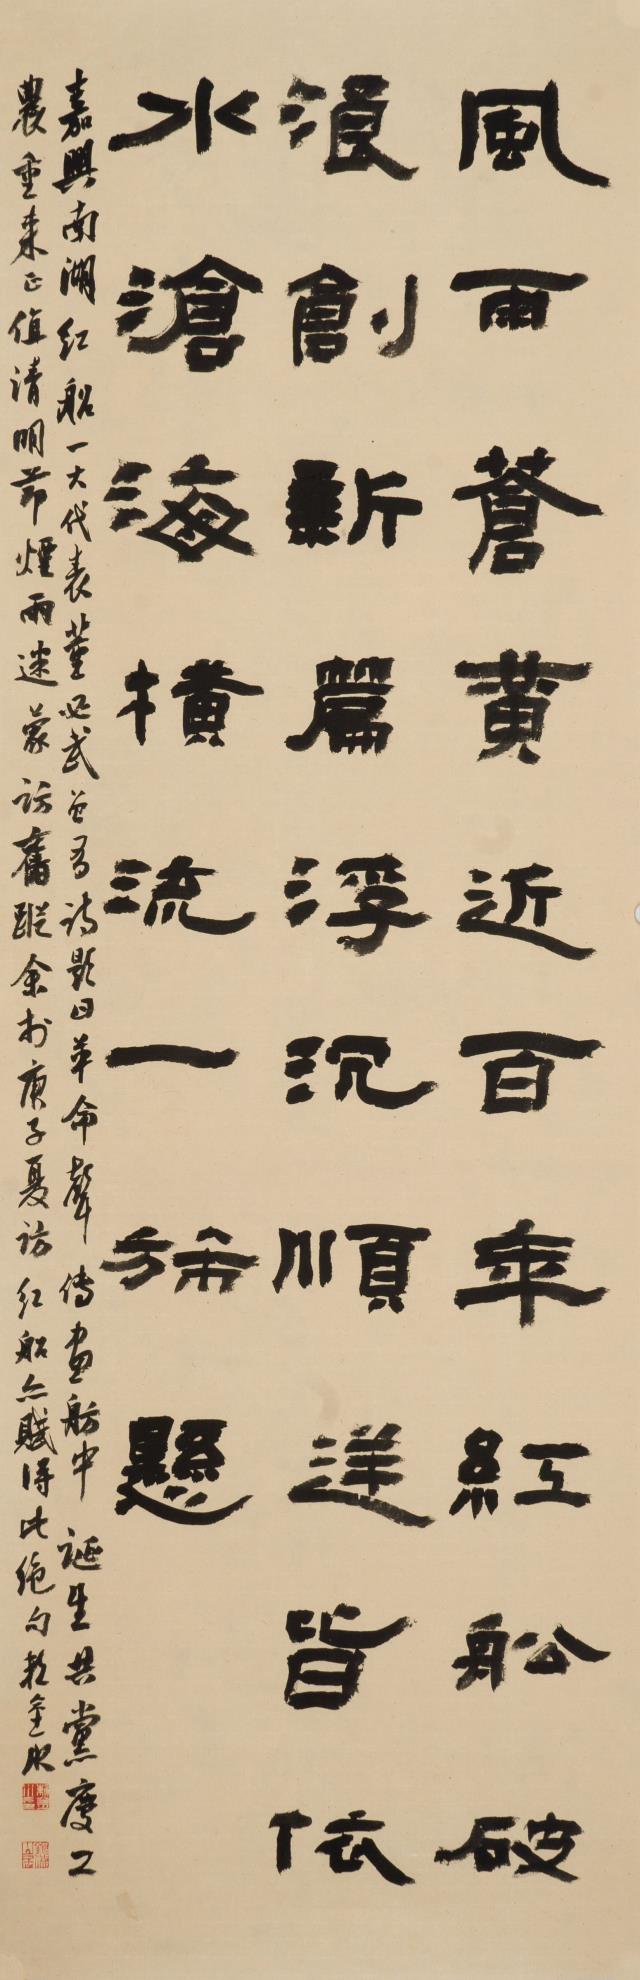 風雨蒼黃近百年紅舩破
浪創新篇浮沉順逆皆依
水滄海橫流一旆懸
嘉興南湖紅船一大代表董必武曾有詩題曰革命聲傳畫舫中誕生共黨慶工
農重來正值清明節煙雨迷蒙訪舊蹤余於庚子夏訪紅船亦賦得此絕句